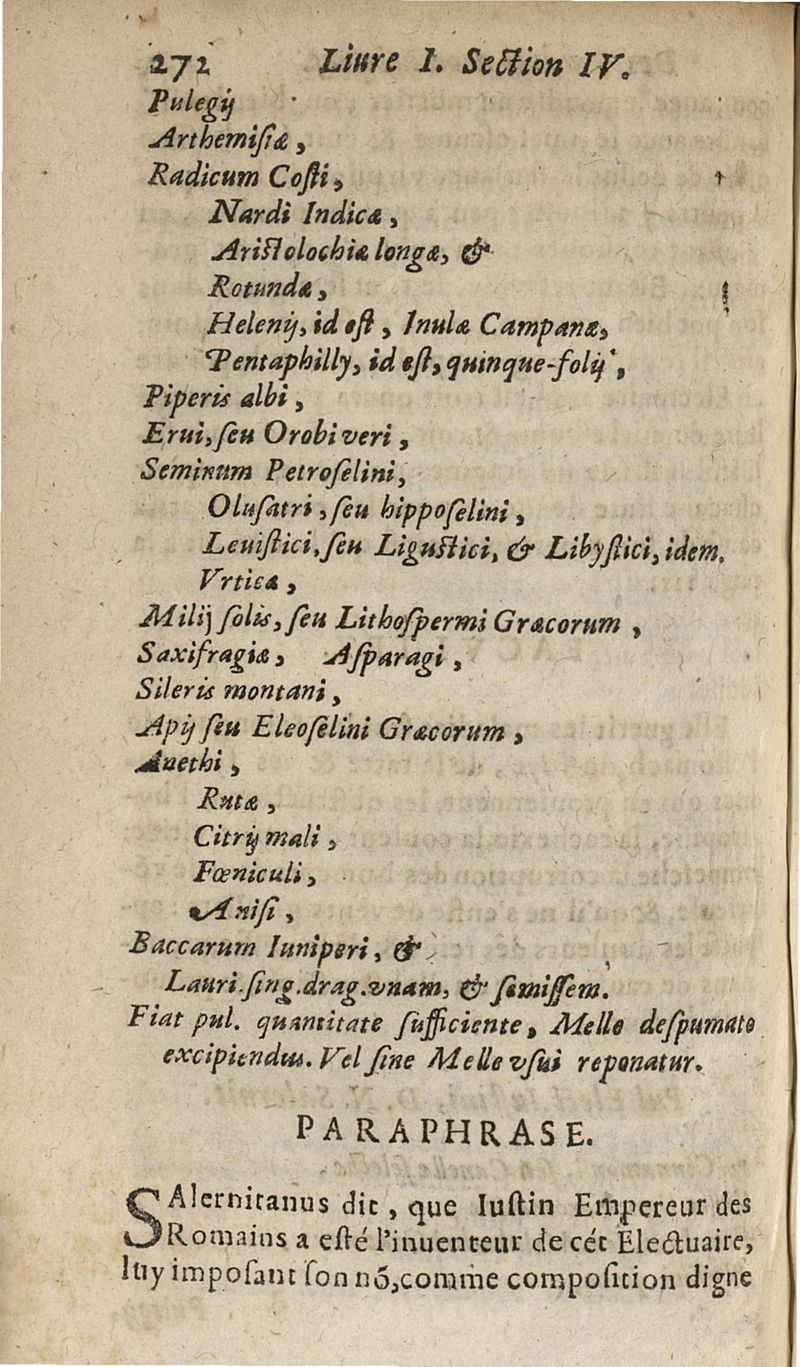 272 Liure I. Section IV.
Pulegij
Arthemiſiæ,
Radicum Coſti,
Nardi Indicæ,
Ariſtolochiæ longæ, &
Rotundæ,
Helenij, id eſt, Inulæ Campanæ,
Pentaphilly, id eſt, quinque-folij,
Piperis albi,
Erui, ſeu Orobi veri,
Seminum Petroſelini,
Oluſatri, ſeu hippoſelini,
Leuiſtici, ſeu Liguſtici, & Libyſtici, idem.
Vrticæ,
Milij ſolis, ſeu Lithoſpermi Græcorum,
Saxifragiæ, Aſparagi,
Sileris montani,
Apij ſeu Eleoſelini Græcorum,
Anethi,
Rutæ,
Citrij mali,
Fœniculi,
Aniſi,
Baccarum Iuniperi, &
Lauri. ſing. drag. vnam, & ſemiſſem.
Fiat pul. quantitate ſufficiente, Melle deſpumato
excipiendus. Vel ſine Melle vſui reponatur.
PARAPHRASE.
SAlernitanus dit, que Iuſtin Empereur des
Romains a eſté l'inuenteur de cét Electuaire,
luy impoſant ſon nõ, comme compoſition digne